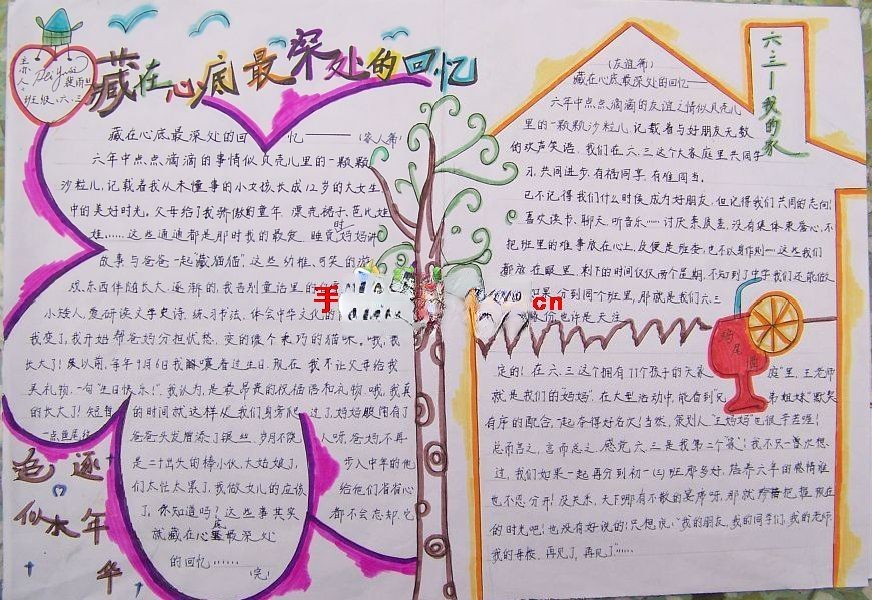 藏在心底最深处的回忆
主办人
裴雨竺
班级：六.三
藏在心底最深处的回忆————(家人篇)
六年中点点滴滴的事情似贝壳儿里的一颗颗
沙粒儿,记载着我从未懂事的小女孩长成12岁的大女生
中的美好时光。父母给了我骄傲的童年 漂亮裙子、芭比娃
娃……这些通通都是那时我的最爱。睡觉时妈妈讲
故事与爸爸一起"藏猫猫",这些幼稚、可笑的游
戏东西伴随长大。逐渐的,我告别童话里的
小矮人,爱研读文学史诗、练习书法、体会中华文化的
我变了,我开始帮爸妈分担忧愁,变的像个乖巧的猫咪。"我,我
长大了!"
以前,每年9月6日我
着过生日,现在 我不让父母给我
买礼物,一句"生日快乐!"。我认为,是最昂贵的祝福语和礼物。哦,我真
的长大了!短暂的时间就这样从我们身旁爬过了,妈妈眼角有了
一点鱼尾纹
爸爸头发增添了银丝,岁月不饶人呀,爸妈不再
是二十出头的棒小伙、大姑娘了,步入中年的他
们太忙太累了,我做女儿的应该给他们省省心
了,你知道吗?这些事其实都不会忘却,它
就藏在心底最深处
的回忆……(完)
追逐
似水年华
六·三—我的家
(友谊篇)
藏在心底最深处的回忆————
六年中点点滴滴的友谊之情似贝壳儿
里的一颗颗沙粒儿,记载着与好朋友无数
的欢声笑语,我们在六.三这个大家庭里共同学
习,共同进步,有福同享,有难同当。
已不记得我们什么时候成为好朋友,但记得我们共同的志向!
喜欢读书、聊天、听音乐……讨厌
没有集体荣誉心,不
把班里的难事放在心上,
是班委,也不以身作则……这些我们
都放在眼里,剩下的时间仅仅两个星期,不知到了中学我们还能做
如果分到同个班里,那就是我们六.三
缘份也许是天注
定的!在六.三这个拥有77个孩子的大家庭"里,王老师
就是我们的"妈妈"。在大型活动中,能看到兄弟姐妹"默契
有序的配合,一起夺得好名次!当然,策划人"王妈妈"也很辛苦哩!
总而言之,言而总之,感觉六.三是我第二个"家"!我不只一次
想
过,我们如果一起再分到初一(三)班那多好,培养六年的感情谁
也不忍分开!没关系,天下哪有不散的宴席呀,那就
把握现在
的时光吧!也没有好说的!只想说:"我的朋友,我的同学们,我的老师
我的母校,再见了,再见了"……
鸡尾酒
手
.cn